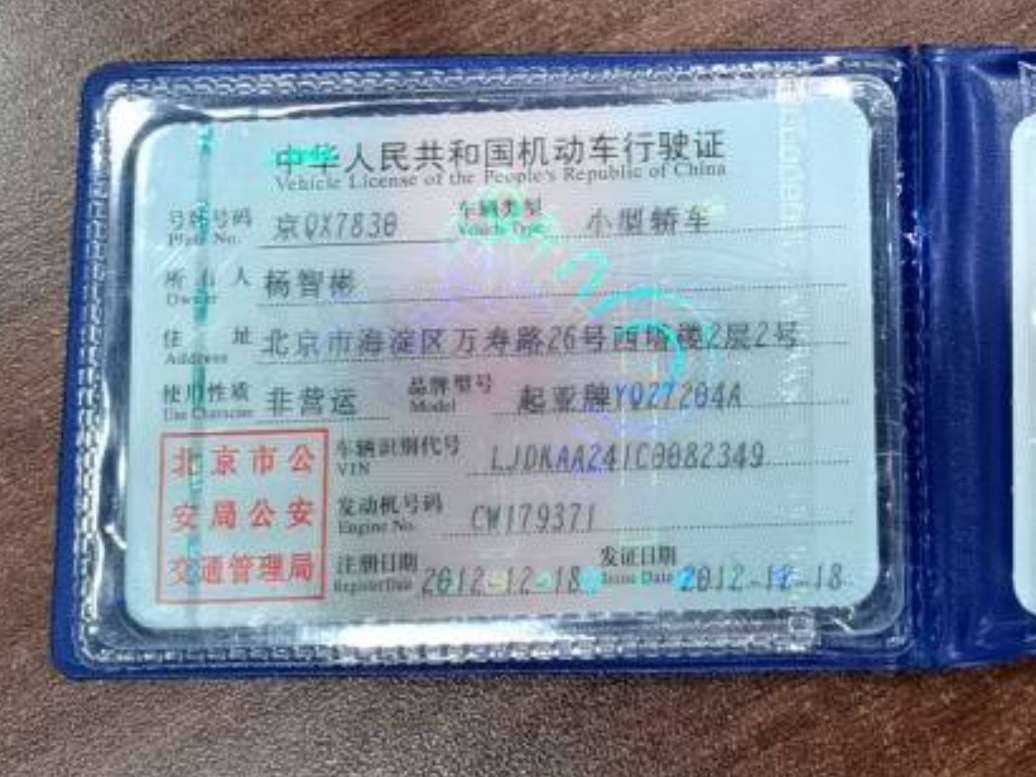 中华人民共和国机动车行驶证
Vehicle License of the People's Republic of China
号牌号码 京QX7830 车辆类型 小型轿车
Plate No. Vehicle Type
所有人 杨智彬
Owner
住址 北京市海淀区万寿路26号西塔楼2层2号
Address
使用性质 非营运 品牌型号 起亚牌YQZ7204A
Use Character Model
北京市公
安局公安
交通管理局
车辆识别代号 LJDKAA241C0082349
VIN
发动机号码 CW179371
Engine No.
注册日期 2012-12-18 发证日期 2012-12-18
Register Date Issue Date